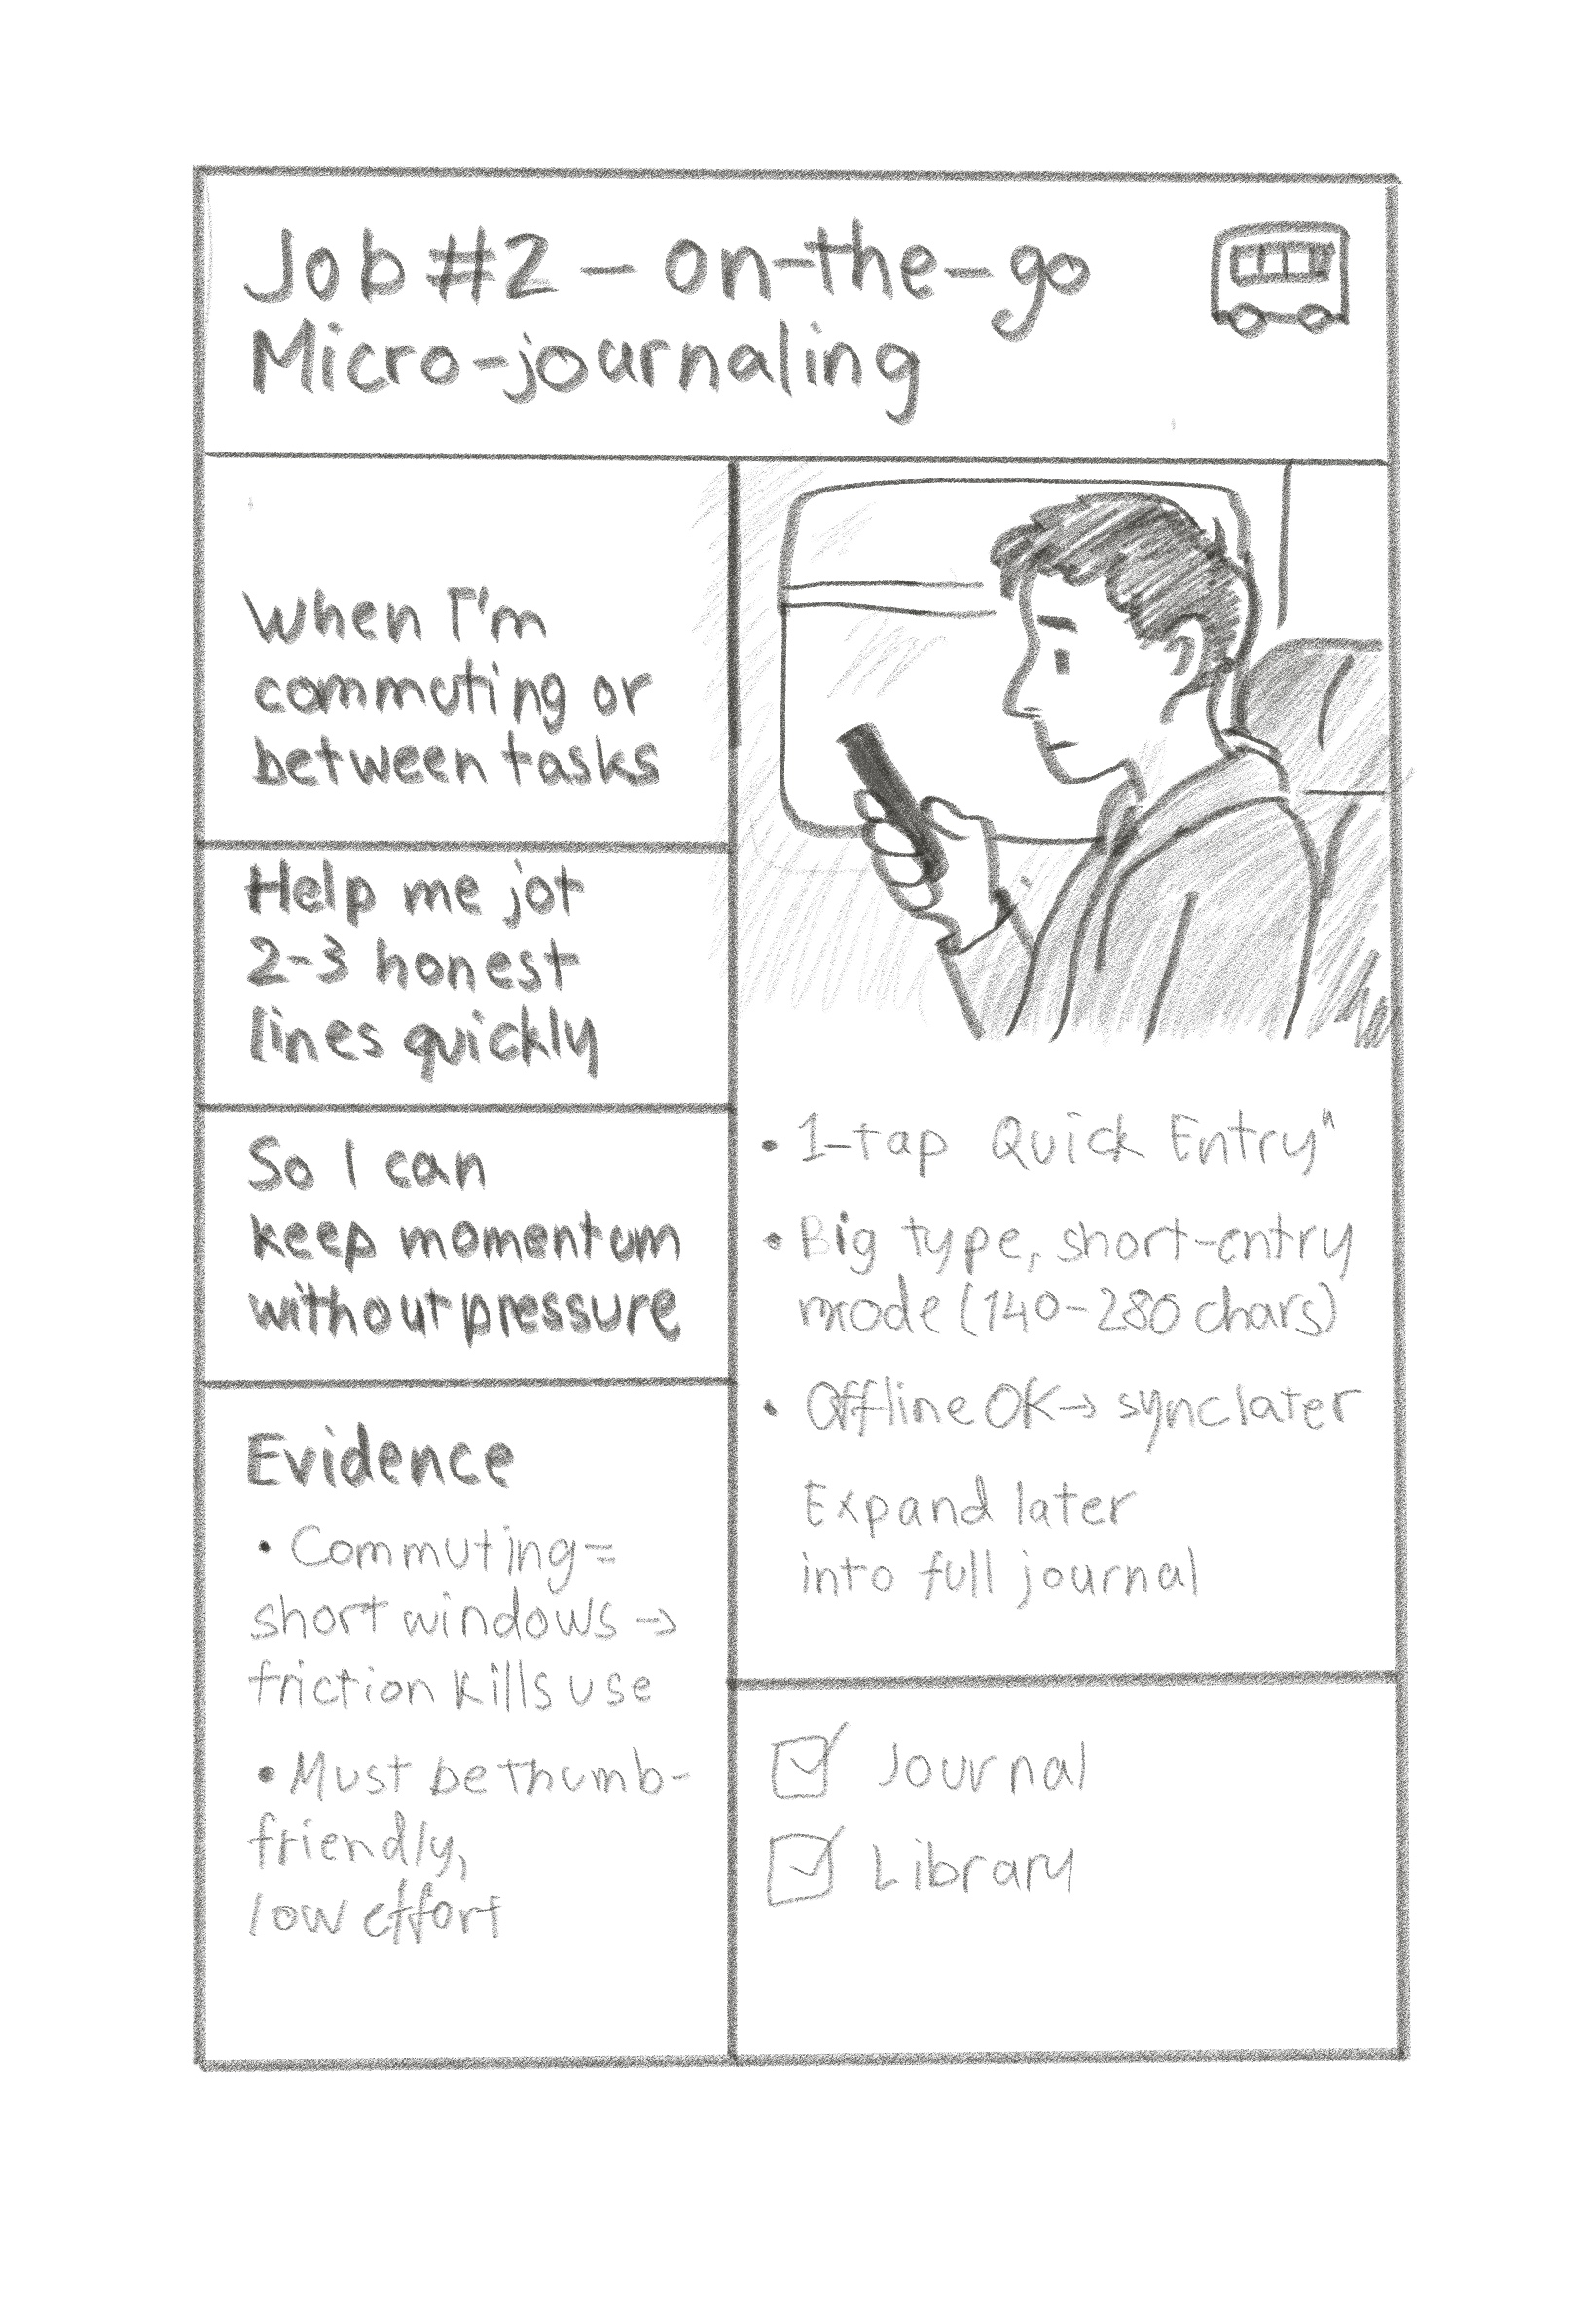 Job #2 - on-the-go
Micro-journaling
When I'm
commuting or
between tasks
Help me jot
2-3 honest
lines quickly
So I can
keep momentum
without pressure
Evidence
• Commuting =
short windows →
friction kills use
• Must be thumb-
friendly,
low effort
• 1-tap Quick Entry"
• Big type, short-entry
mode (140-280 chars)
• Offline OK → sync later
Expand later
into full journal
Journal
Library